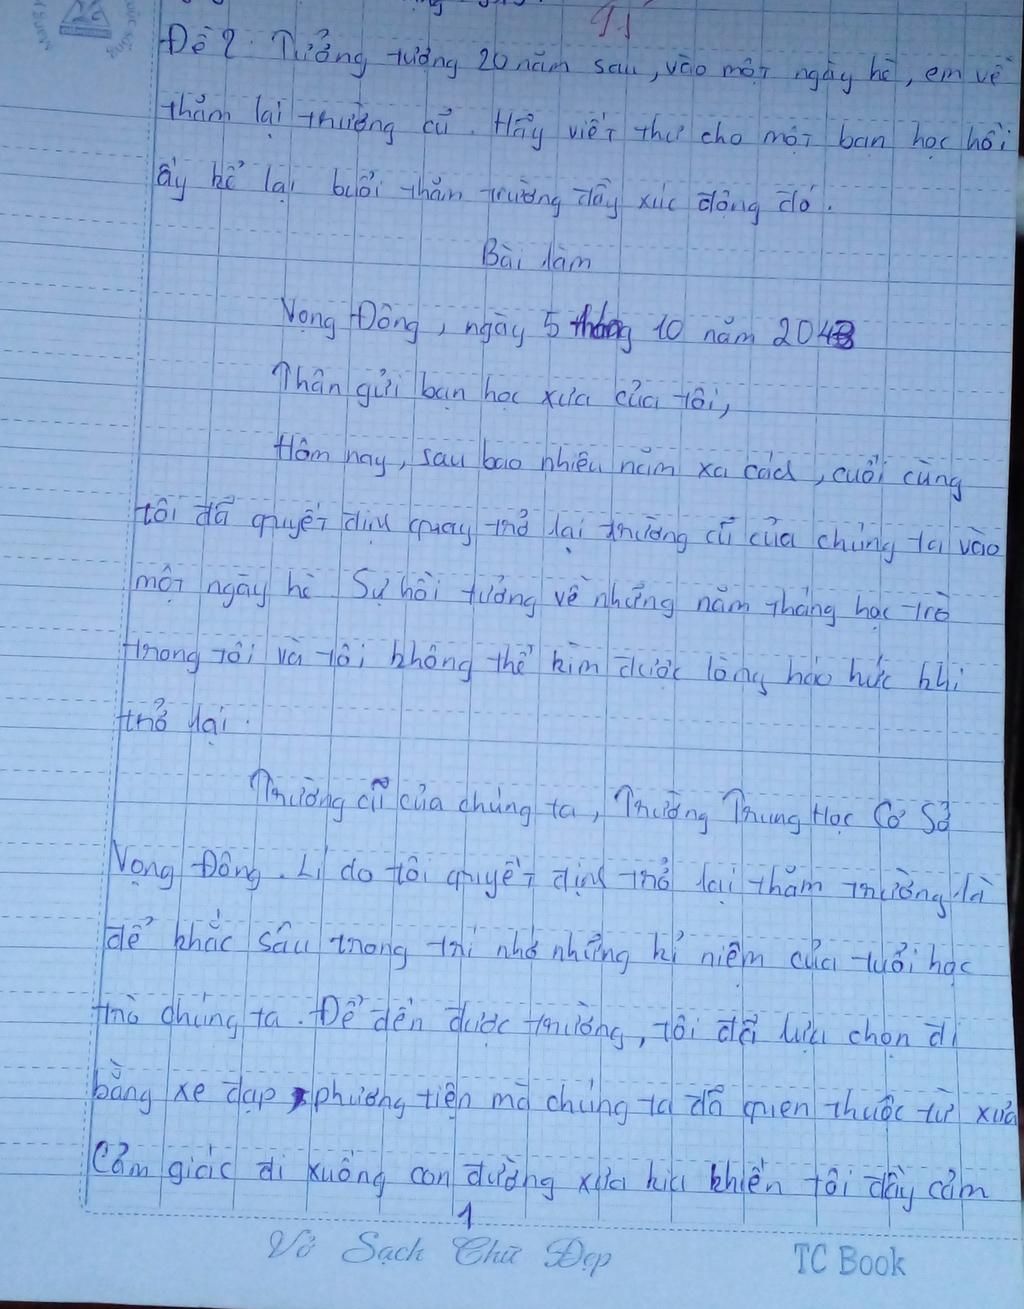 9.5
Đề 2: Tưởng tượng 20 năm sau, vào một ngày hè, em về
thăm lại trường cũ. Hãy viết thư cho một bạn học hồi
ấy kể lại buổi thăm trường đầy xúc động đó.
Bài làm
Vọng Đông, ngày 5 tháng 10 năm 2043
Thân gửi bạn học xưa của tôi,
Hôm nay, sau bao nhiêu năm xa cách, cuối cùng
tôi đã quyết định quay trở lại trường cũ của chúng ta vào
một ngày hè. Sự hồi tưởng về những năm tháng học trò
trong tôi và tôi không thể kìm được lòng háo hức khi
trở lại.
Trường cũ của chúng ta, Trường Trung Học Cơ Sở
Vọng Đông. Lí do tôi quyết định trở lại thăm trường là
để khắc sâu trong trí nhớ những kỉ niệm của tuổi học
trò chúng ta. Để đến được trường, tôi đã lựa chọn đi
bằng xe đạp, phương tiện mà chúng ta đã quen thuộc từ xưa
Cảm giác đi xuống con đường xưa kia khiến tôi đầy cảm
1
Vở Sạch Chữ Đẹp TC Book